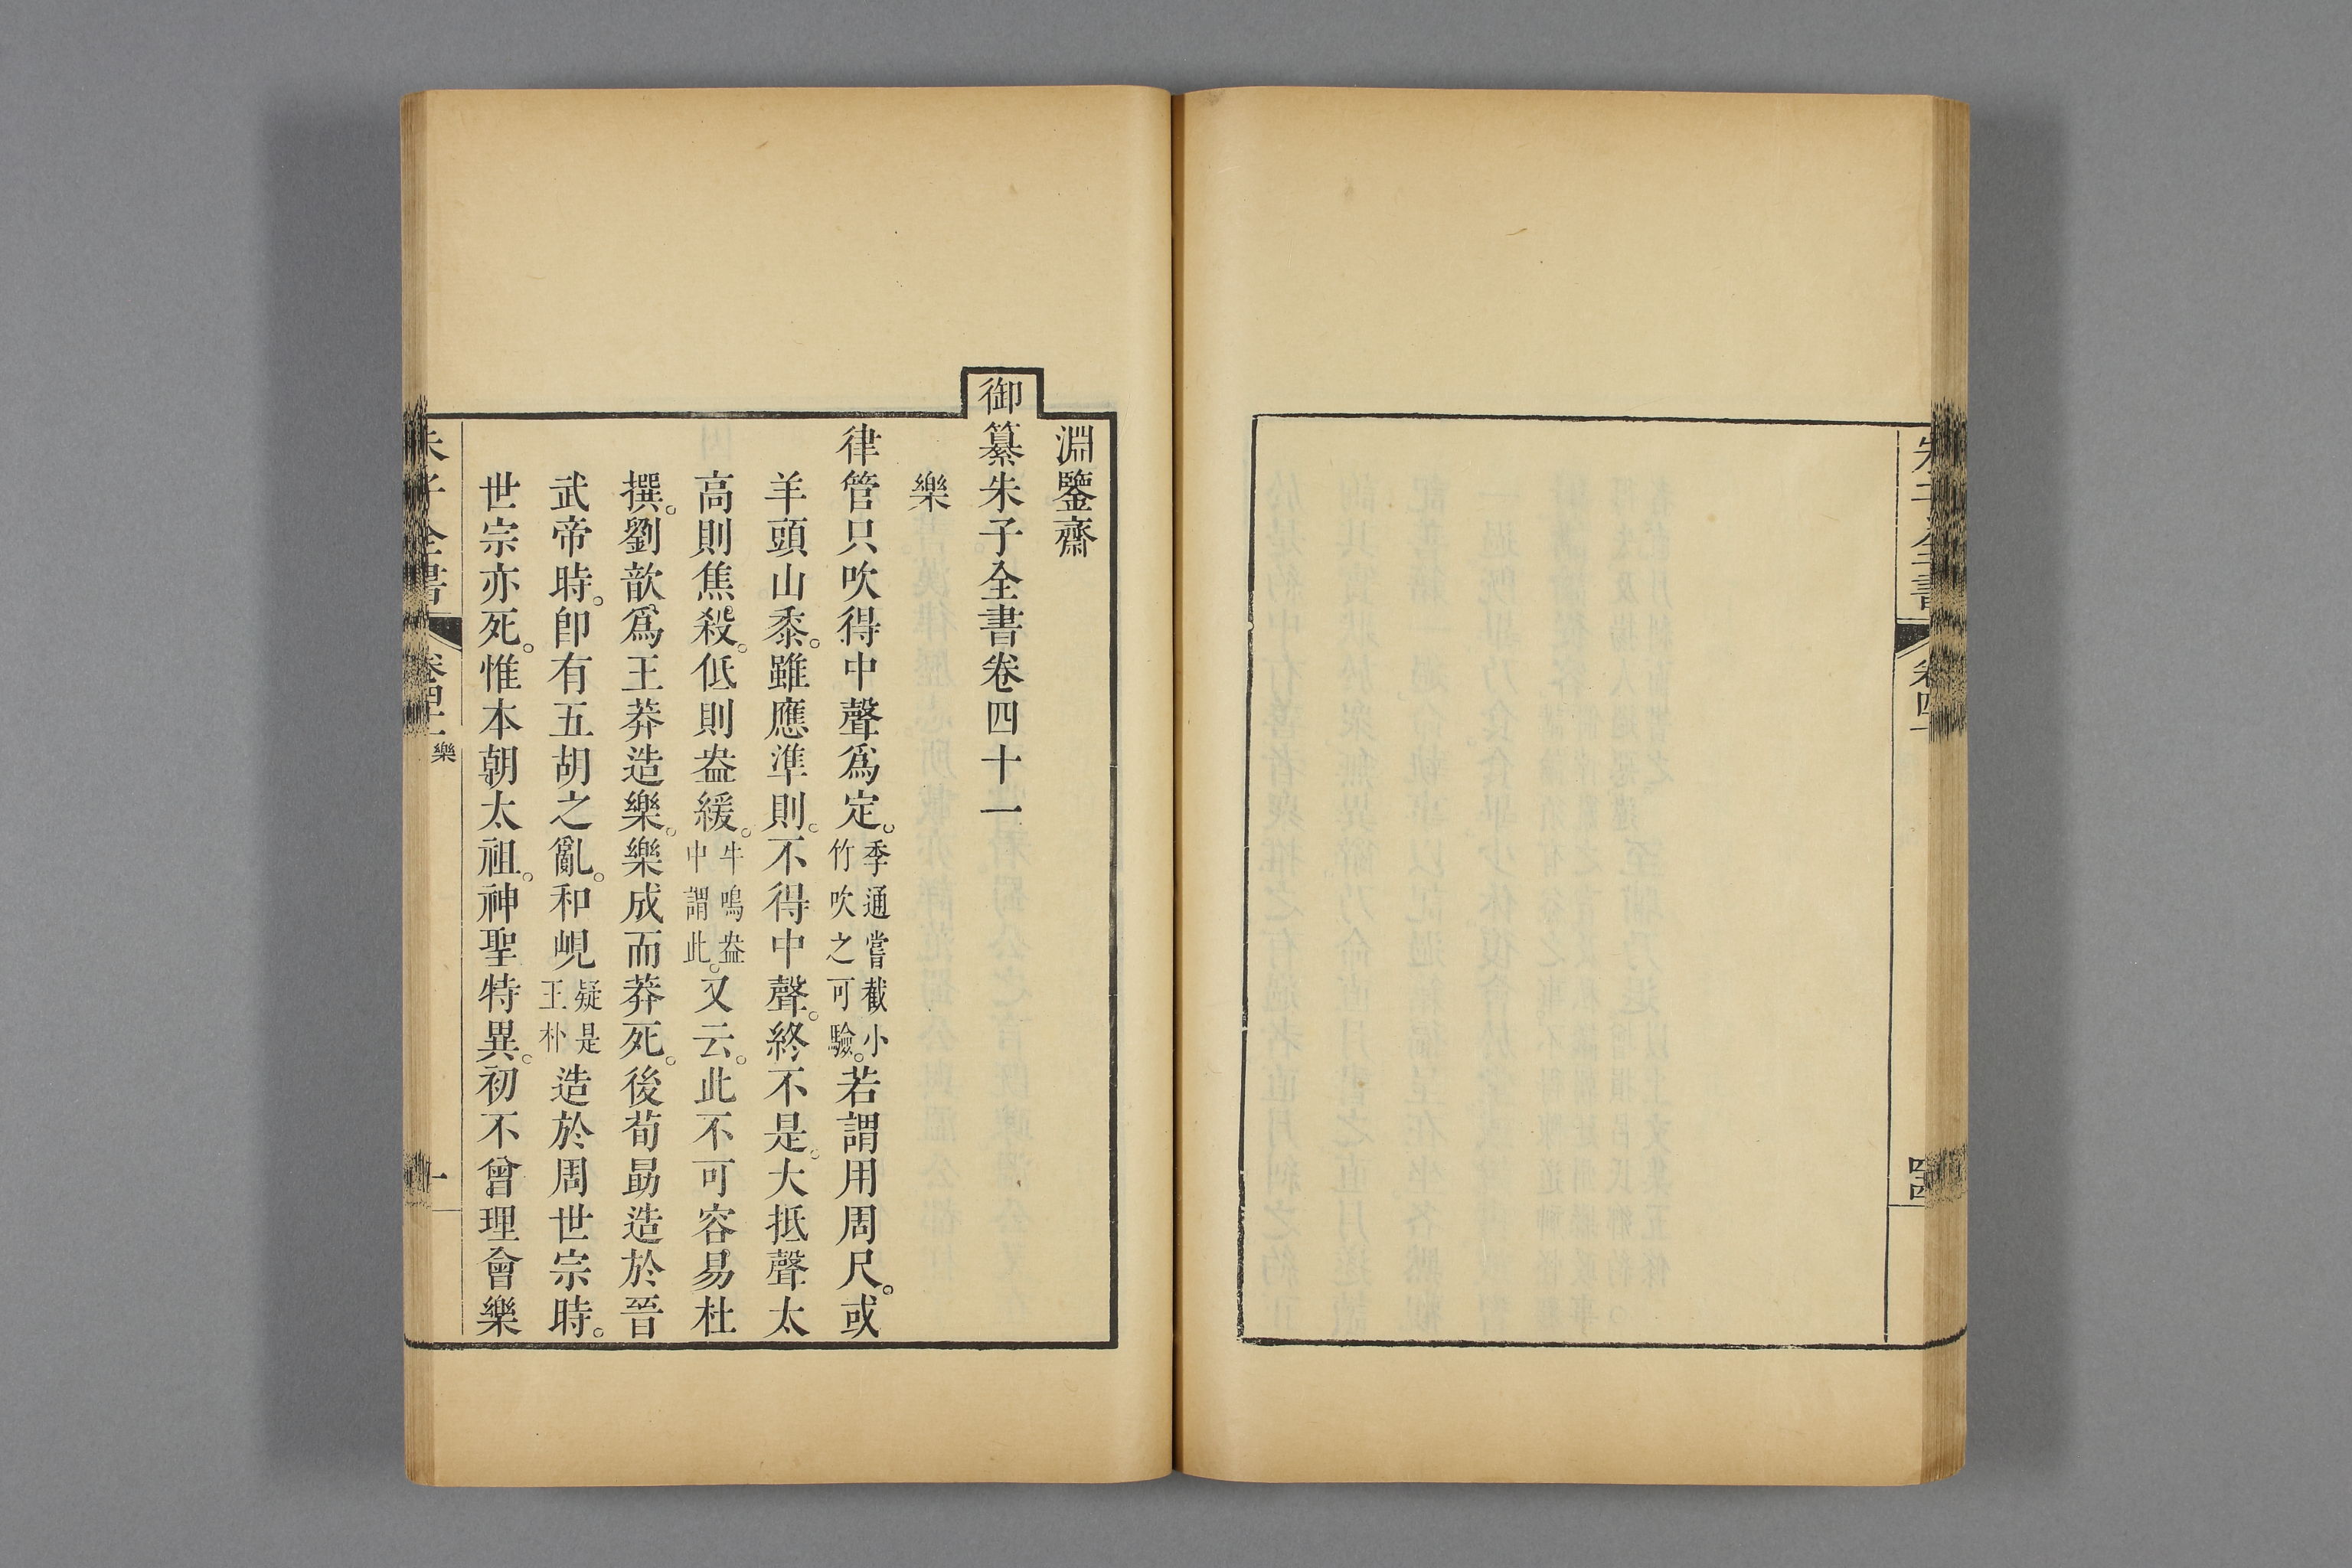 淵鑒齋
御纂朱子全書卷四十一
樂
律管只吹得中聲爲定。季通嘗截小竹吹之可驗。若謂用周尺。或
羊頭山黍。雖應準則。不得中聲。終不是。大抵聲太
高則焦殺。低則盎緩。牛鳴盎中謂此。又云。此不可容易杜
撰。劉歆爲王莽造樂。樂成而莽死。後荀勗造於晉
武帝時。卽有五胡之亂。和峴疑是王朴造於周世宗時。
世宗亦死。惟本朝太祖。神聖特異。初不曾理會樂
朱子全書
樂
一
朱子全書